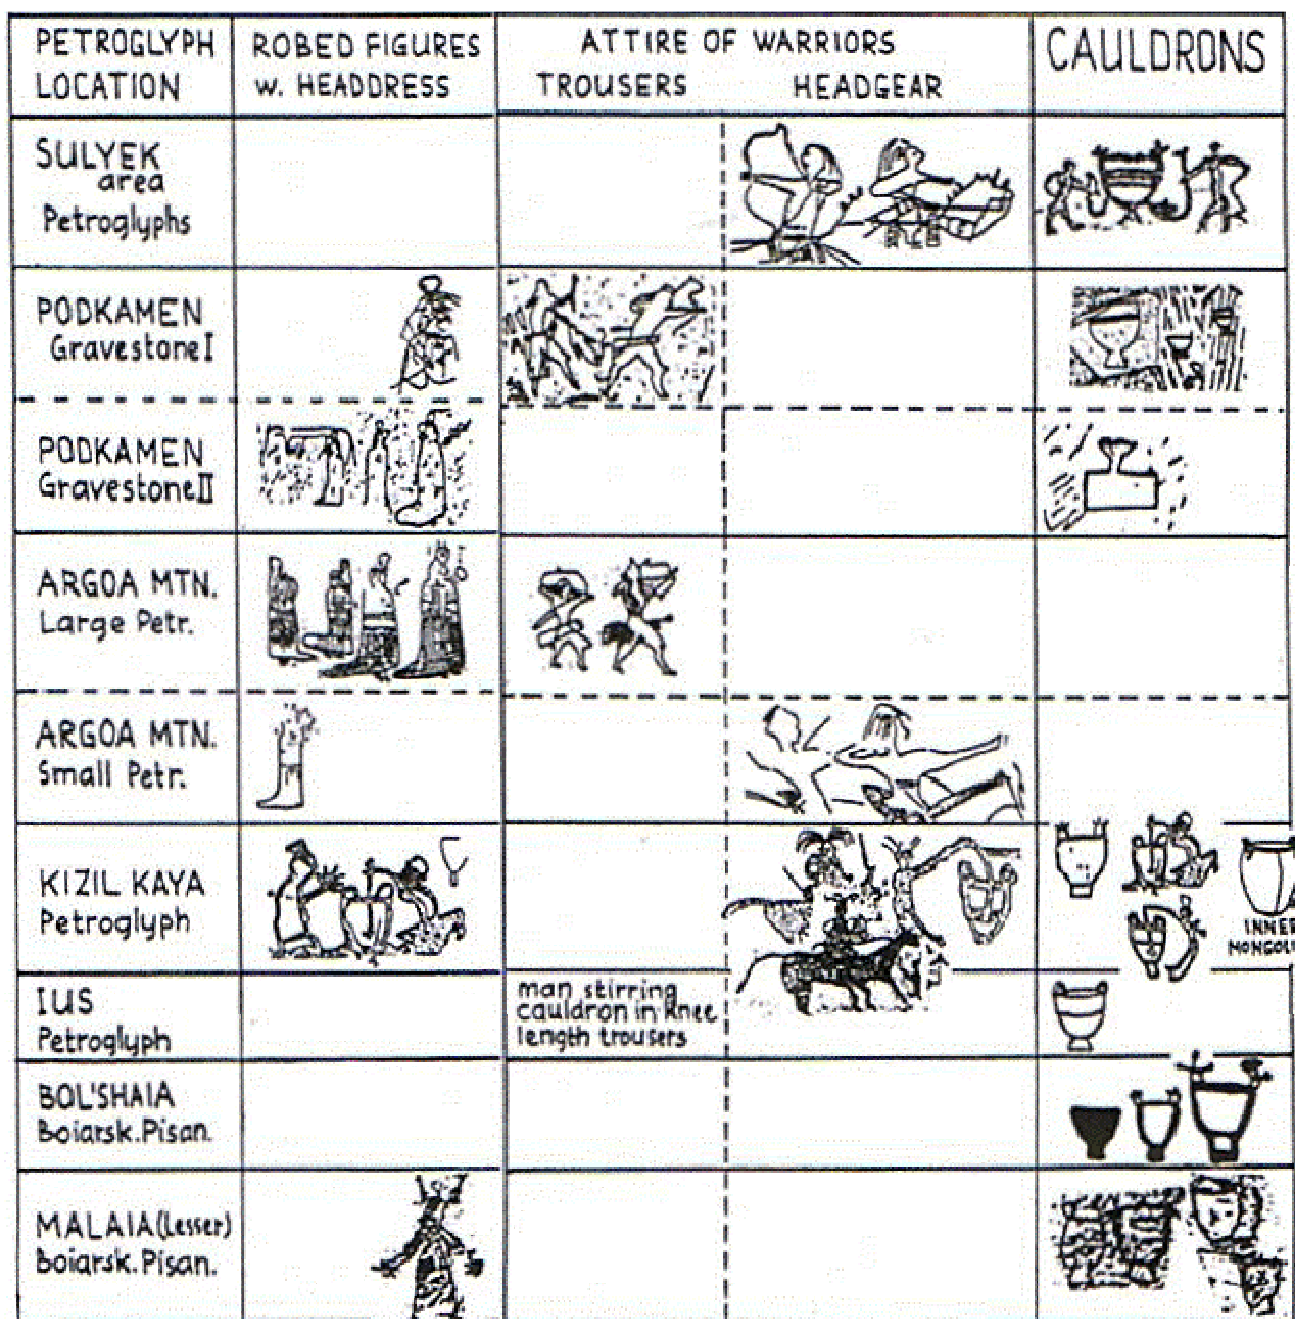 PETROGLYPH LOCATION
ROBED FIGURES w. HEADDRESS
ATTIRE OF WARRIORS
TROUSERS HEADGEAR
CAULDRONS
SULYEK
area
Petroglyphs
PODKAMEN
Gravestone I
PODKAMEN
Gravestone II
ARGOA MTN.
Large Petr.
ARGOA MTN.
Small Petr.
KIZIL KAYA
Petroglyph
INNER
MONGOL
IUS
Petroglyph
man stirring
cauldron in Knee
length trousers
BOL'SHAIA
Boiarsk. Pisan.
MALAIA (Lesser)
Boiarsk. Pisan.